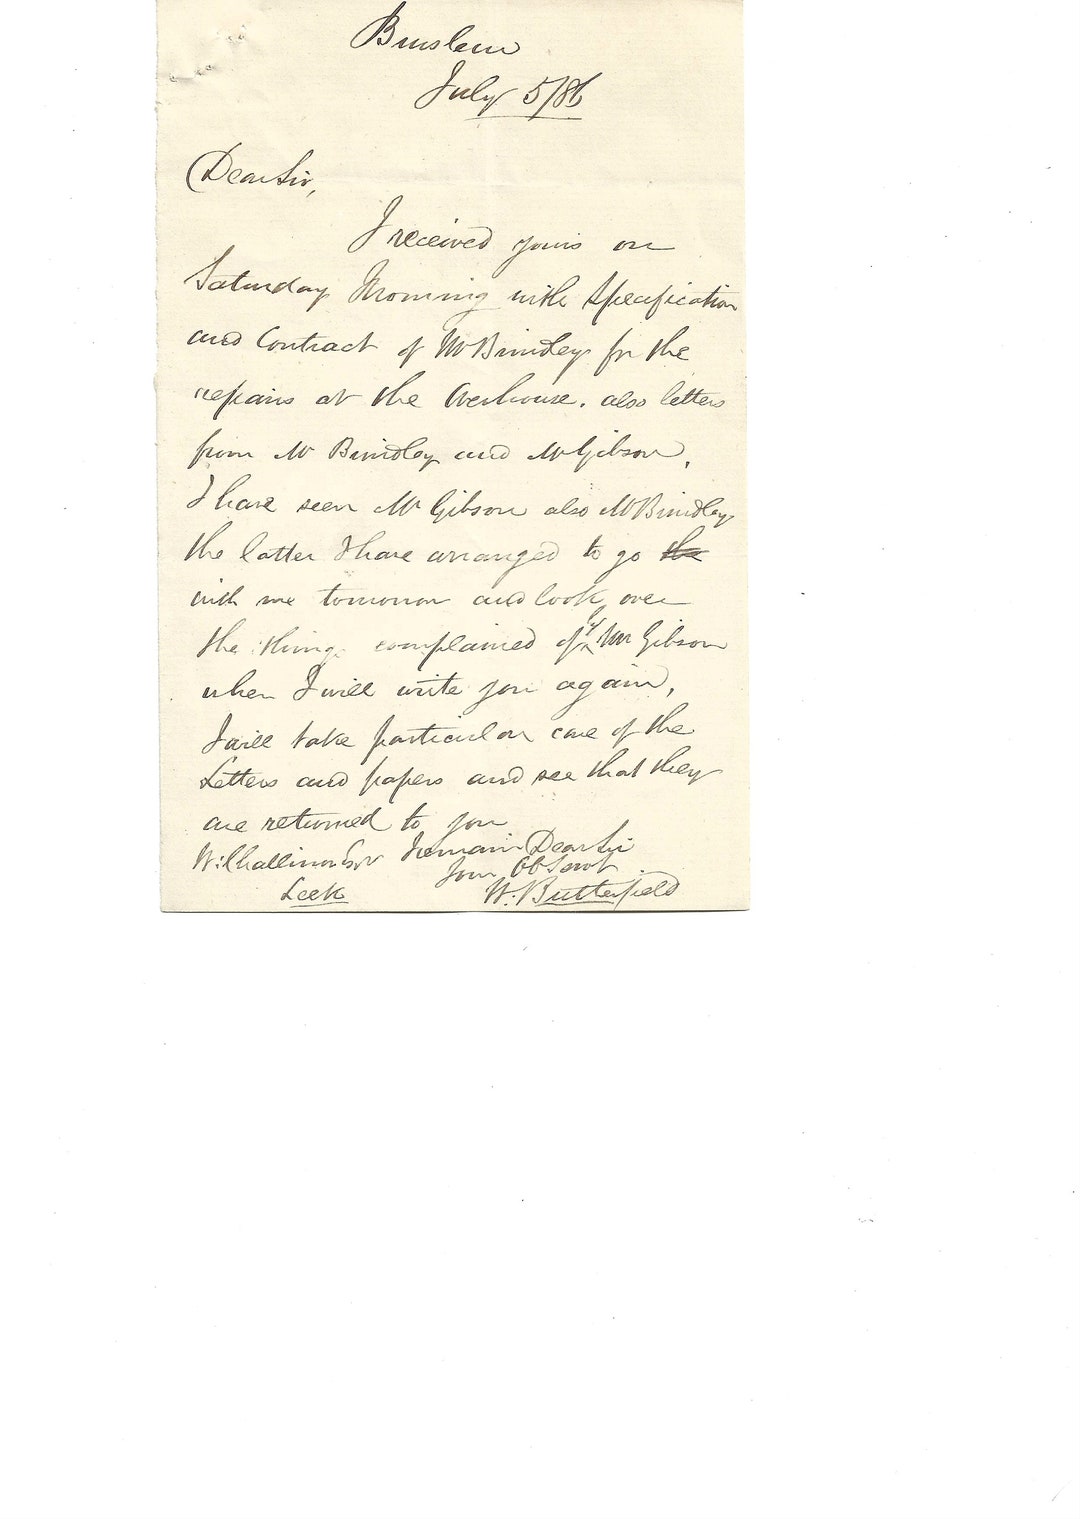 Burslem
July 5/86
Dear Sir,
I received yours on
Saturday Morning with Specification
and Contract of Mr Brindley for the
repairs at the Overhouse. also letters
from Mr Brindley and Mr Gibson,
I have seen Mr Gibson also Mr Brindley
the latter I have arranged to go the
with me tomorrow and look over
the things complained of by Mr Gibson
when I will write you again,
I will take particular care of the
Letters and papers and see that they
are returned to you
I remain Dear Sir
Your Ob Servt
W. Butterfield
W. Challinor Esqr
Leek